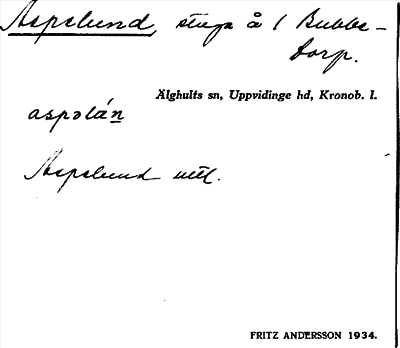 Aspelund, stuga å 1 Bubbe-
torp.
Älghults sn, Uppvidinge hd, Kronob. l.
aspəlán
Aspelund utt.
FRITZ ANDERSSON 1934.